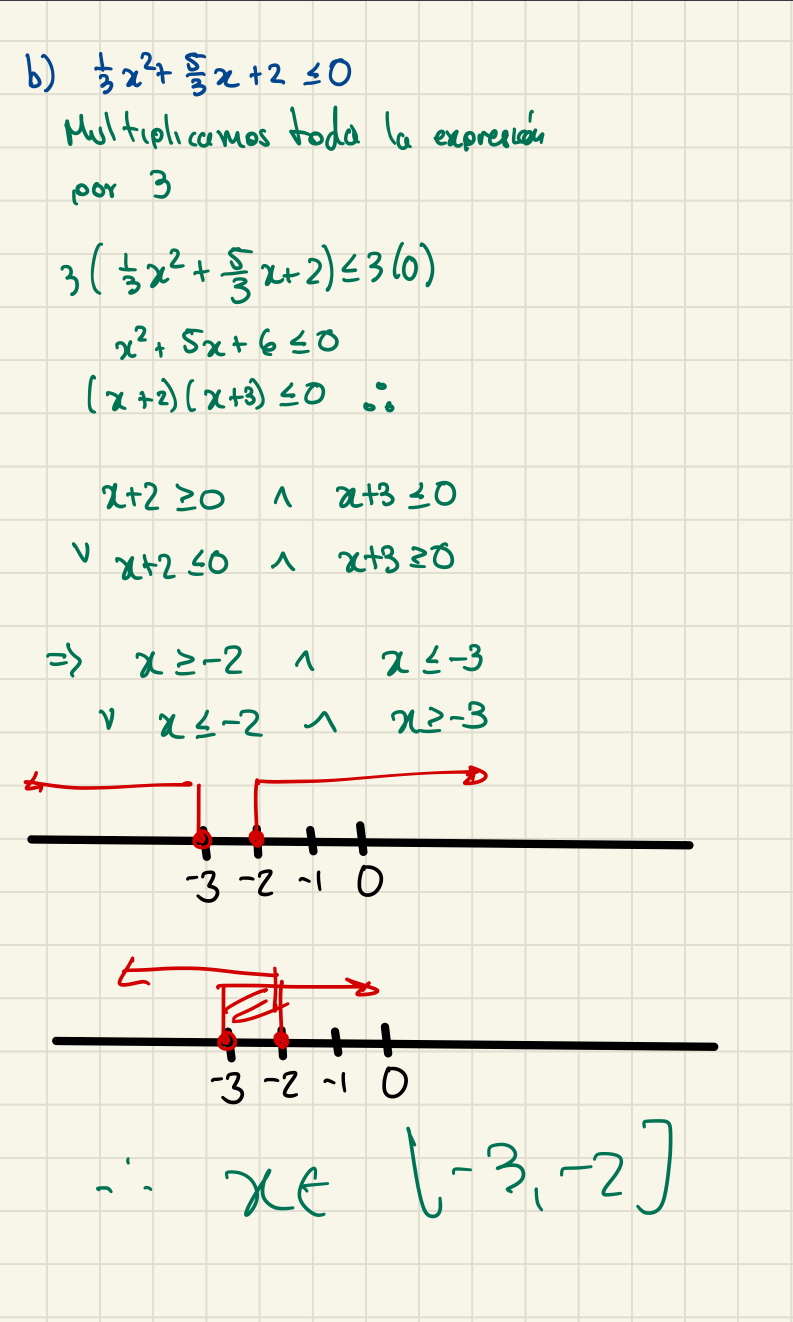 b) 1/3 x² + 5/3 x + 2 ≤ 0
Multiplicamos toda la expresión
por 3
3 ( 1/3 x² + 5/3 x + 2 ) ≤ 3(0)
x² + 5x + 6 ≤ 0
(x + 2)(x + 3) ≤ 0 ∴
x+2 ≥ 0 ∧ x+3 ≤ 0
∨ x+2 ≤ 0 ∧ x+3 ≥ 0
=> x ≥ -2 ∧ x ≤ -3
∨ x ≤ -2 ∧ x ≥ -3
-3 -2 -1 0
-3 -2 -1 0
∴ x ∈ [-3, -2]